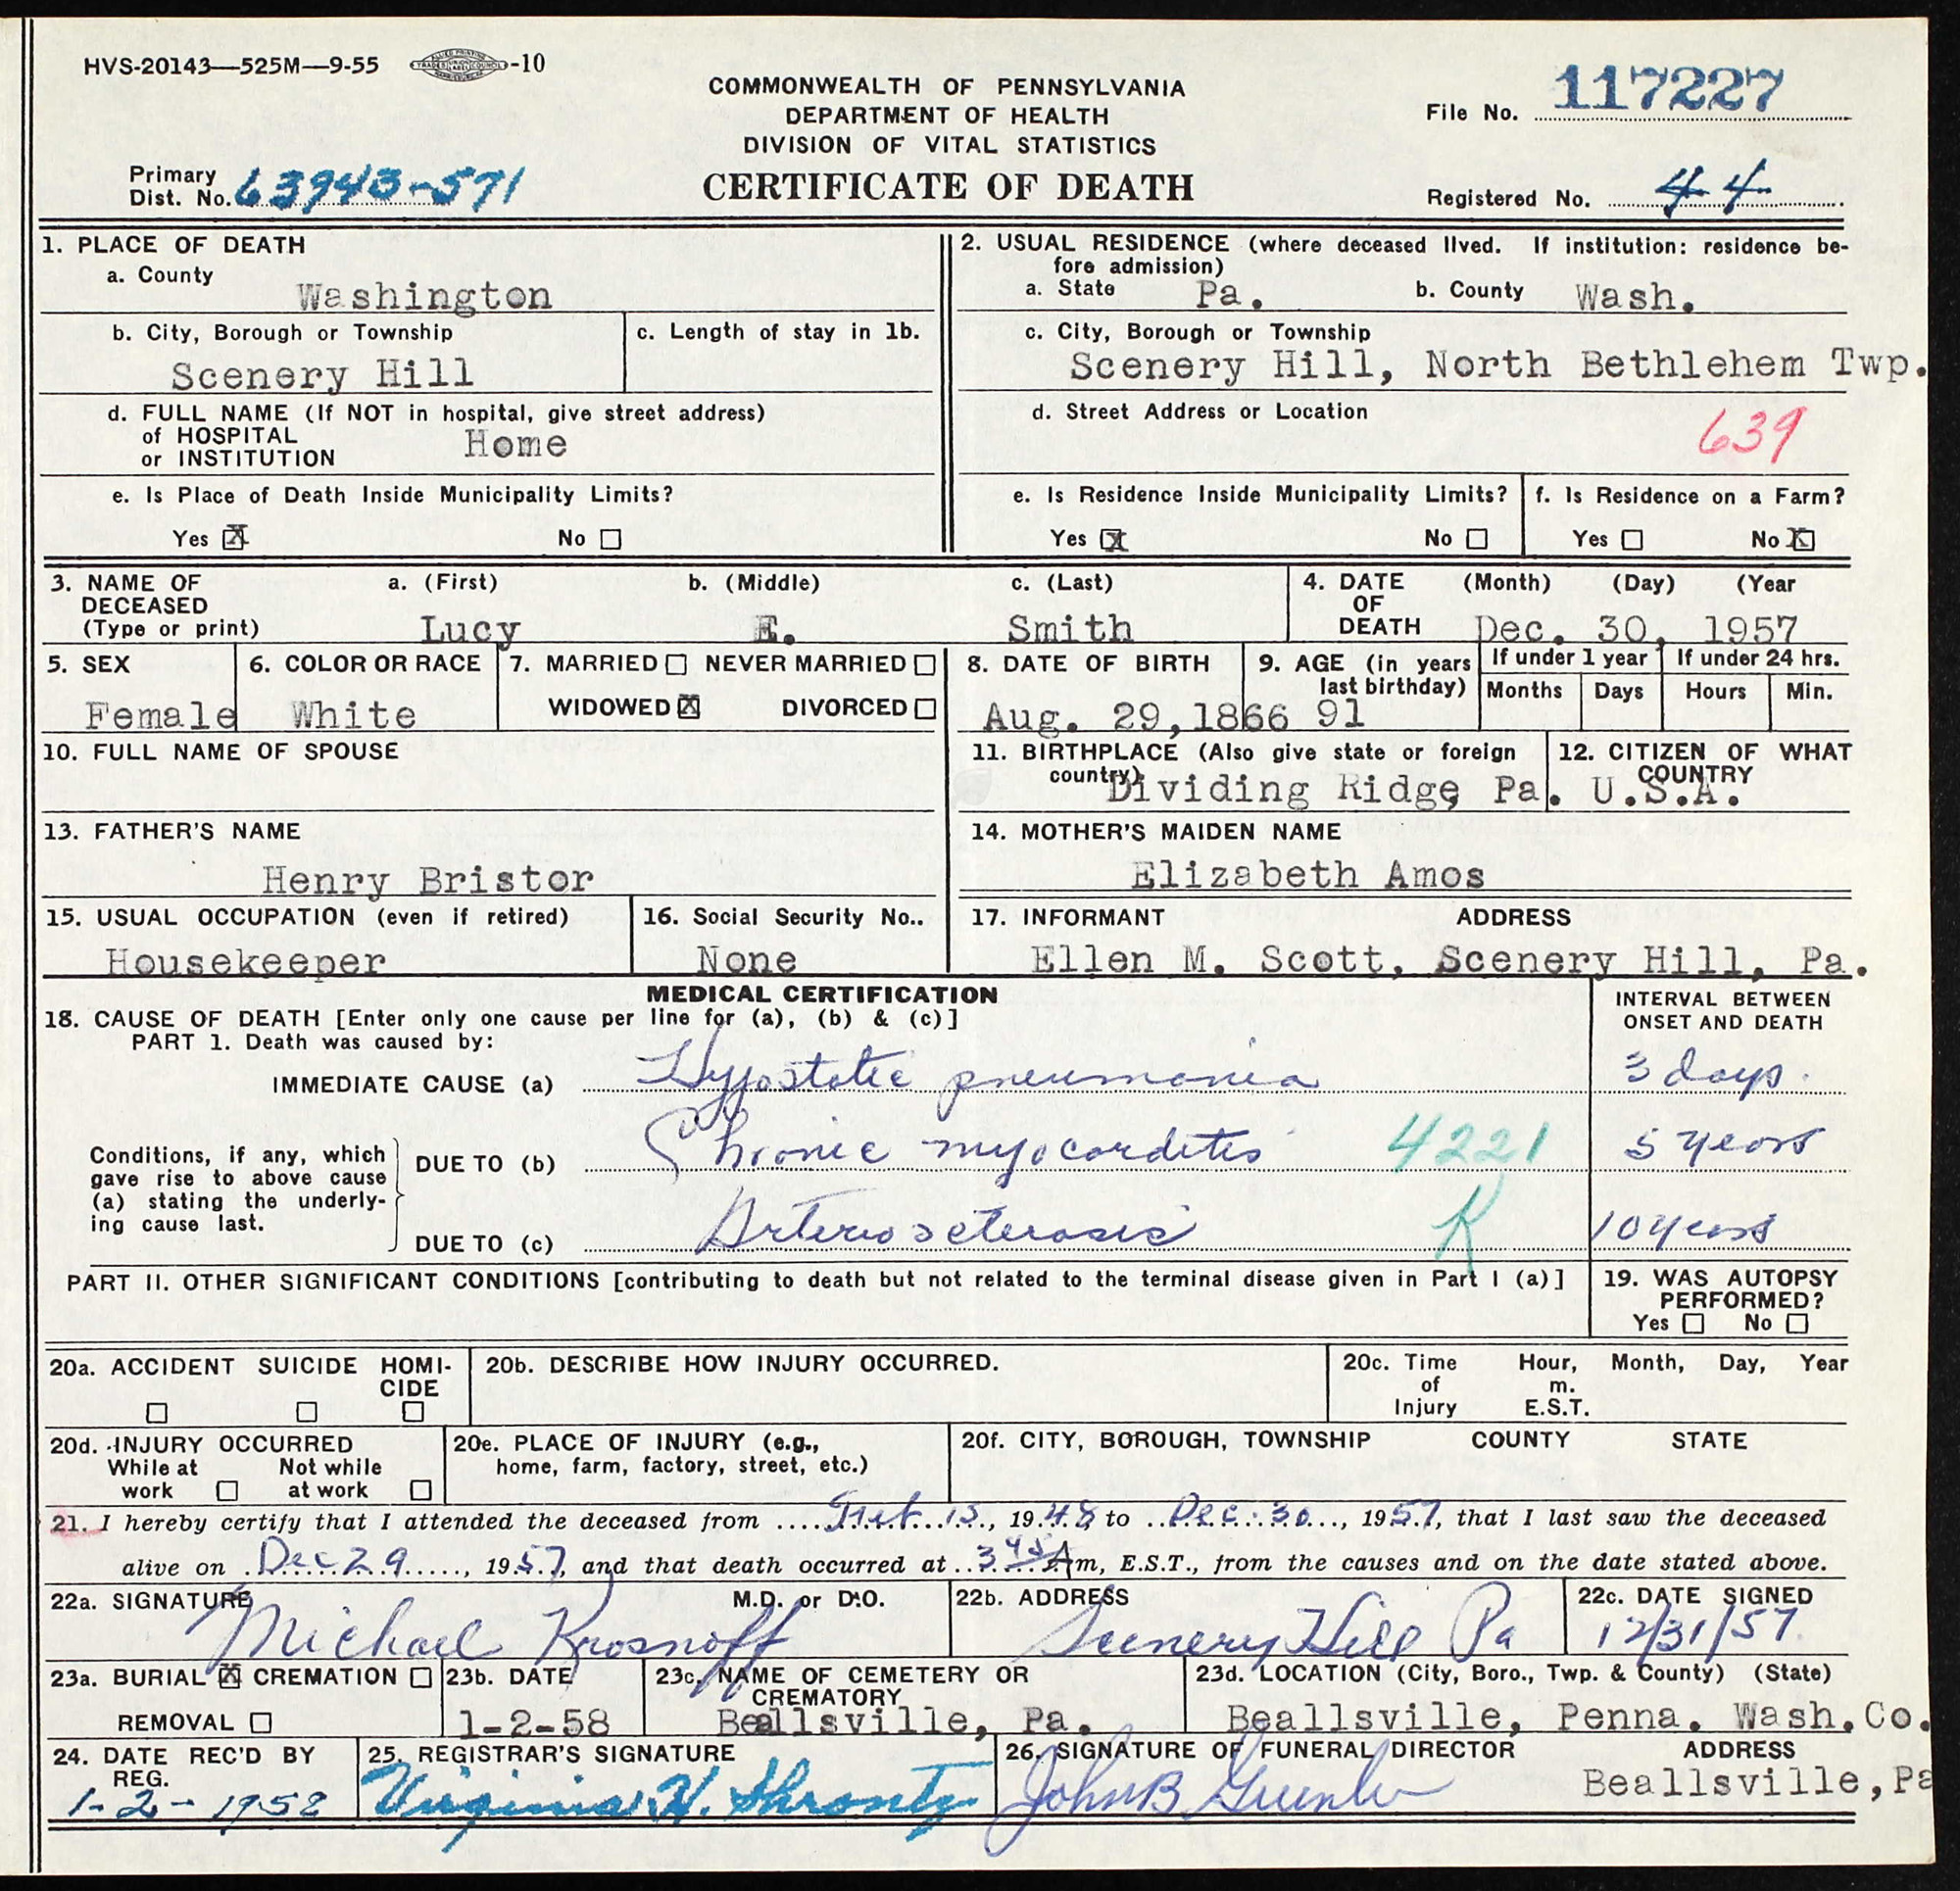 HVS-20143—525M—9-55 -10
COMMONWEALTH OF PENNSYLVANIA
DEPARTMENT OF HEALTH
DIVISION OF VITAL STATISTICS
CERTIFICATE OF DEATH
File No. 117227
Primary
Dist. No. 63943-571
Registered No. 44
1. PLACE OF DEATH
a. County
Washington
b. City, Borough or Township
Scenery Hill
c. Length of stay in 1b.
d. FULL NAME (If NOT in hospital, give street address)
of HOSPITAL
or INSTITUTION
Home
e. Is Place of Death Inside Municipality Limits?
Yes ☒ No ☐
2. USUAL RESIDENCE (where deceased lived. If institution: residence be-
fore admission)
a. State Pa. b. County Wash.
c. City, Borough or Township
Scenery Hill, North Bethlehem Twp.
d. Street Address or Location
639
e. Is Residence Inside Municipality Limits?
Yes ☒ No ☐
f. Is Residence on a Farm?
Yes ☐ No ☒
3. NAME OF DECEASED (Type or print)
a. (First) b. (Middle) c. (Last)
Lucy E. Smith
4. DATE OF DEATH (Month) (Day) (Year
Dec. 30, 1957
5. SEX
Female
6. COLOR OR RACE
White
7. MARRIED ☐ NEVER MARRIED ☐
WIDOWED ☒ DIVORCED ☐
8. DATE OF BIRTH
Aug. 29,1866
9. AGE (in years
last birthday)
91
If under 1 year
Months Days
If under 24 hrs.
Hours Min.
10. FULL NAME OF SPOUSE
11. BIRTHPLACE (Also give state or foreign
country)
Dividing Ridge, Pa.
12. CITIZEN OF WHAT
COUNTRY
U.S.A.
13. FATHER'S NAME
Henry Bristor
14. MOTHER'S MAIDEN NAME
Elizabeth Amos
15. USUAL OCCUPATION (even if retired)
Housekeeper
16. Social Security No..
None
17. INFORMANT ADDRESS
Ellen M. Scott, Scenery Hill, Pa.
MEDICAL CERTIFICATION
18. CAUSE OF DEATH [Enter only one cause per line for (a), (b) & (c)]
PART 1. Death was caused by:
INTERVAL BETWEEN
ONSET AND DEATH
IMMEDIATE CAUSE (a) Hypostatic pneumonia 3 days.
Conditions, if any, which
gave rise to above cause
(a) stating the underly-
ing cause last.
DUE TO (b) Chronic myocarditis 4221 5 years
DUE TO (c) Arteriosclerosis K 10 years
PART II. OTHER SIGNIFICANT CONDITIONS [contributing to death but not related to the terminal disease given in Part I (a)]
19. WAS AUTOPSY
PERFORMED?
Yes ☐ No ☐
20a. ACCIDENT SUICIDE HOMI-
CIDE
☐ ☐ ☐
20b. DESCRIBE HOW INJURY OCCURRED.
20c. Time Hour, Month, Day, Year
of m.
Injury E.S.T.
20d. INJURY OCCURRED
While at Not while
work ☐ at work ☐
20e. PLACE OF INJURY (e.g.,
home, farm, factory, street, etc.)
20f. CITY, BOROUGH, TOWNSHIP COUNTY STATE
21. I hereby certify that I attended the deceased from Feb 13, 1948 to Dec. 30, 1957, that I last saw the deceased
alive on Dec 29, 1957, and that death occurred at 3 45 Am, E.S.T., from the causes and on the date stated above.
22a. SIGNATURE M.D. or D.O.
Michael Krosnoff
22b. ADDRESS
Scenery Hill Pa
22c. DATE SIGNED
12/31/57
23a. BURIAL ☒ CREMATION ☐
REMOVAL ☐
23b. DATE
1-2-58
23c. NAME OF CEMETERY OR
CREMATORY
Beallsville, Pa.
23d. LOCATION (City, Boro., Twp. & County) (State)
Beallsville, Penna. Wash.Co.
24. DATE REC'D BY
REG.
1-2-1958
25. REGISTRAR'S SIGNATURE
Virginia H. Shrontz
26. SIGNATURE OF FUNERAL DIRECTOR ADDRESS
John B Greenlee
Beallsville,Pa